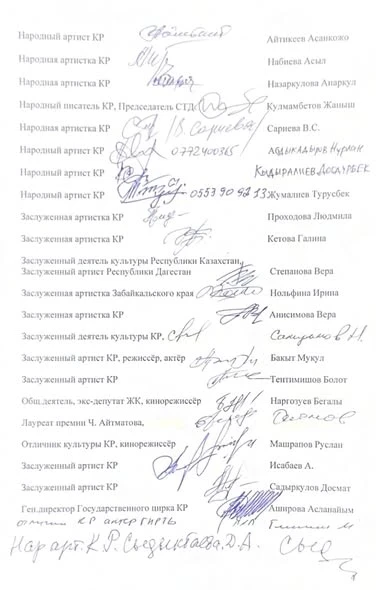 Народный артист КР Айтикеев Асанкожо
Народная артистка КР Набиева Асыл
Народная артистка КР Назаркулова Анаркул
Народный писатель КР, Председатель СТД Кулмамбетов Жаныш
Народная артистка КР /В. Сариева/ Сариева В.С.
Народный артист КР 0772400365 Абдыкадыров Нурлан
Народный артист КР Кыдыралиев Досдурбек
Народный артист КР 0553 90 92 13 Жумалиев Турусбек
Заслуженная артистка КР Проходова Людмила
Заслуженная артистка КР Кетова Галина
Заслуженный деятель культуры Республики Казахстан,
Заслуженный артист Республики Дагестан Степанова Вера
Заслуженная артистка Забайкальского края Нольфина Ирина
Заслуженная артистка КР Анисимова Вера
Заслуженный деятель культуры КР,
Заслуженный артист КР, режиссёр, актёр Бакыт Мукул
Заслуженный артист КР Тентимишов Болот
Общ.деятель, экс-депутат ЖК, кинорежиссёр Наргозуев Бегалы
Лауреат премии Ч. Айтматова,
Отличник культуры КР, кинорежиссёр Машрапов Руслан
Заслуженный артист КР Исабаев А.
Заслуженный артист КР Садыркулов Досмат
Ген.директор Государственного цирка КР Аширова Асланайым
отличник КР актёр
Нар арт. К.Р. Сыдыкбаева. Д.А.